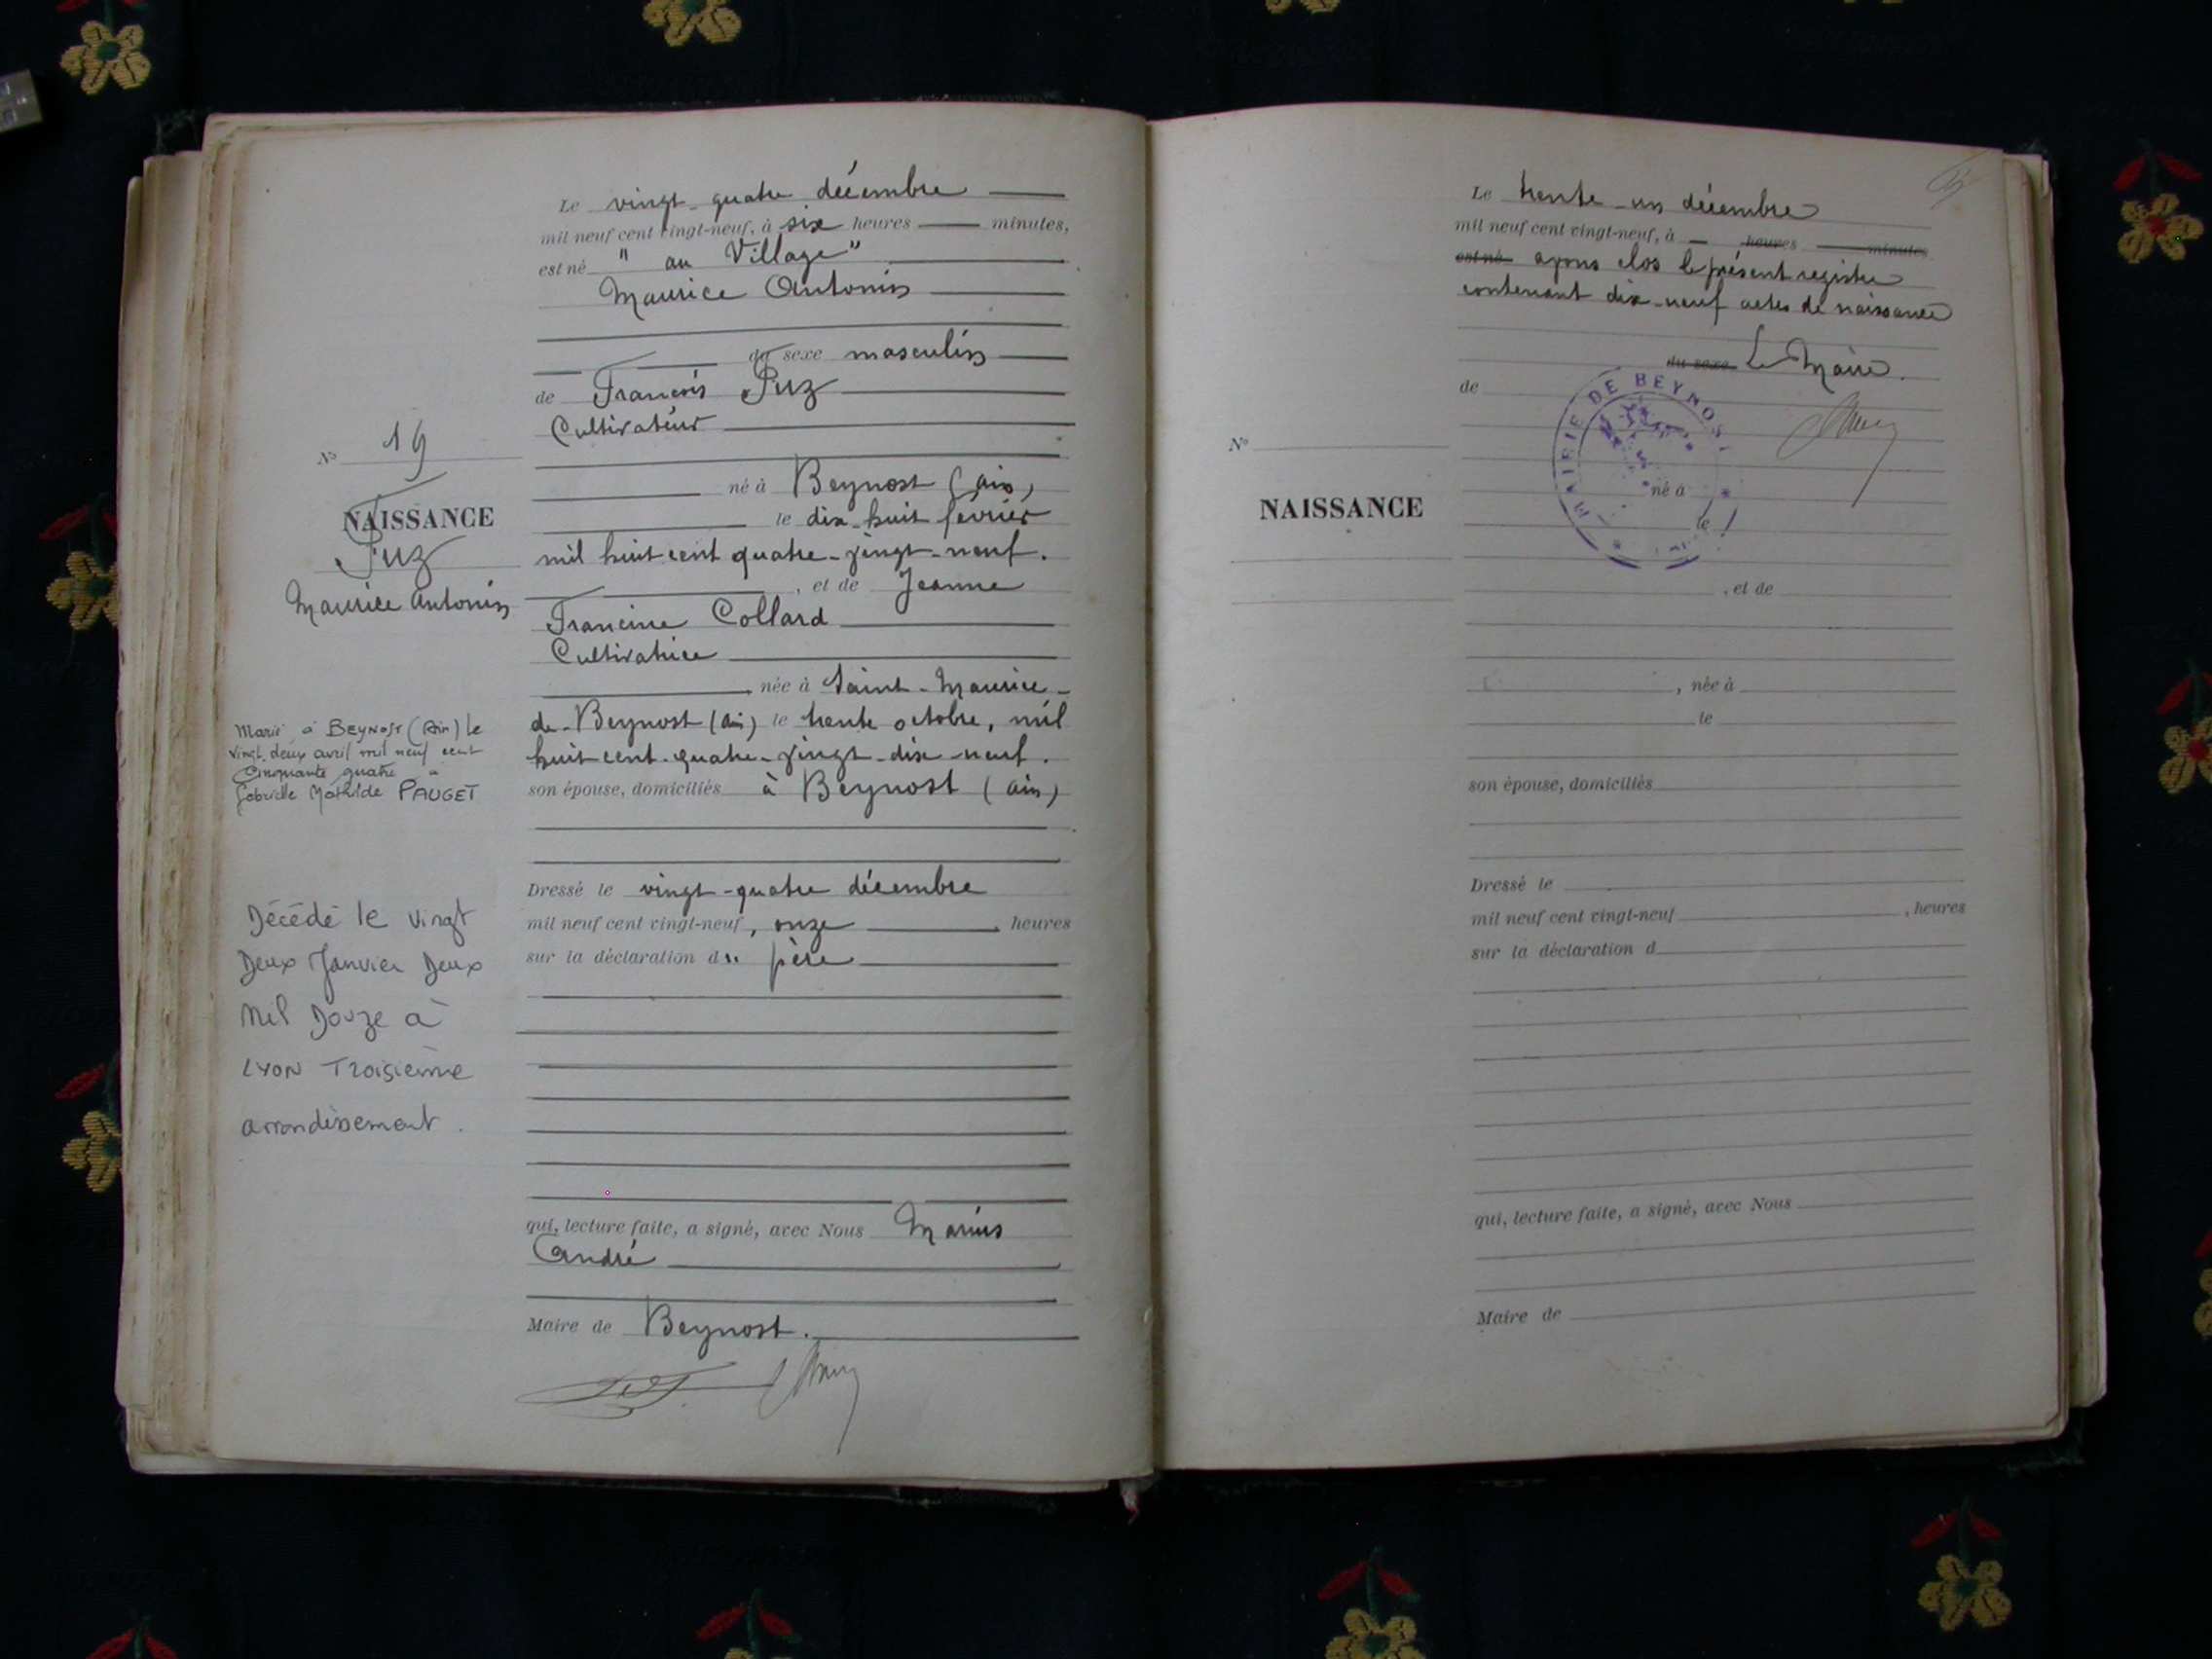 Le vingt-quatre décembre
mil neuf cent vingt-neuf, à six heures minutes,
est né " au Village "
Maurice Antonin
du sexe masculin
de François Puz
Cultivateur
né à Beynost (Ain)
le dix-huit février
mil huit cent quatre-vingt-neuf.
, et de Jeanne
Francine Collard
Cultivatrice
, née à Saint-Maurice-
de-Beynost (Ain) le trente octobre, mil
huit cent quatre-vingt-dix-neuf.
son épouse, domiciliés à Beynost (Ain)
Dressé le vingt-quatre décembre
mil neuf cent vingt-neuf, onze heures
sur la déclaration du père
qui, lecture faite, a signé, avec Nous Marius
André
Maire de Beynost.
N° 19
NAISSANCE
Puz
Maurice Antonin
Marié à BEYNOST (Ain) le
vingt deux avril mil neuf cent
Cinquante quatre à
Gabrielle Mathilde PAUGET
Décédé le vingt
Deux Janvier Deux
Mil Douze à
LYON Troisième
arrondissement.
Le trente-un décembre
mil neuf cent vingt-neuf, à heures minutes
est né avons clos le présent registre
contenant dix-neuf actes de naissance
du sexe Le Maire.
de
MAIRIE DE BEYNOST
N°
NAISSANCE
né à
le
, et de
, née à
le
son épouse, domiciliés
Dressé le
mil neuf cent vingt-neuf , heures
sur la déclaration d
qui, lecture faite, a signé, avec Nous
Maire de